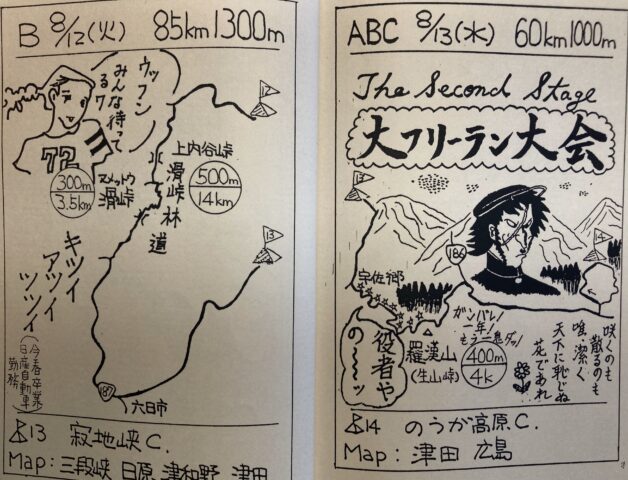 B 8/12(火) 85km 1300m
ウッフン
みんな待って
るワ
72
300m
3.5km
滑峠
上内谷峠
500m
14km
滑峠林道
12
13
キツイ
アツイ
ツツイ
(今春卒業
日産自動車
勤務)
187
六日市
13 寂地峡C.
Map: 三段峡 日原 津和野 津田
ABC 8/13(水) 60km 1000m
The Second Stage
大フリーラン大会
13
186
14
宇佐郷
ガンバレ!
一年!
もう一息ダッ!
役者や
の〜〜ッ
羅漢山
(生山峠)
400m
4k
咲くのも
散るのも
唯潔く
天下に恥じぬ
花であれ
14 のうが高原C.
Map: 津田 広島